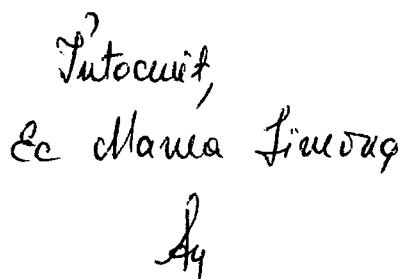 Întocmit,
Ec Manea Simona